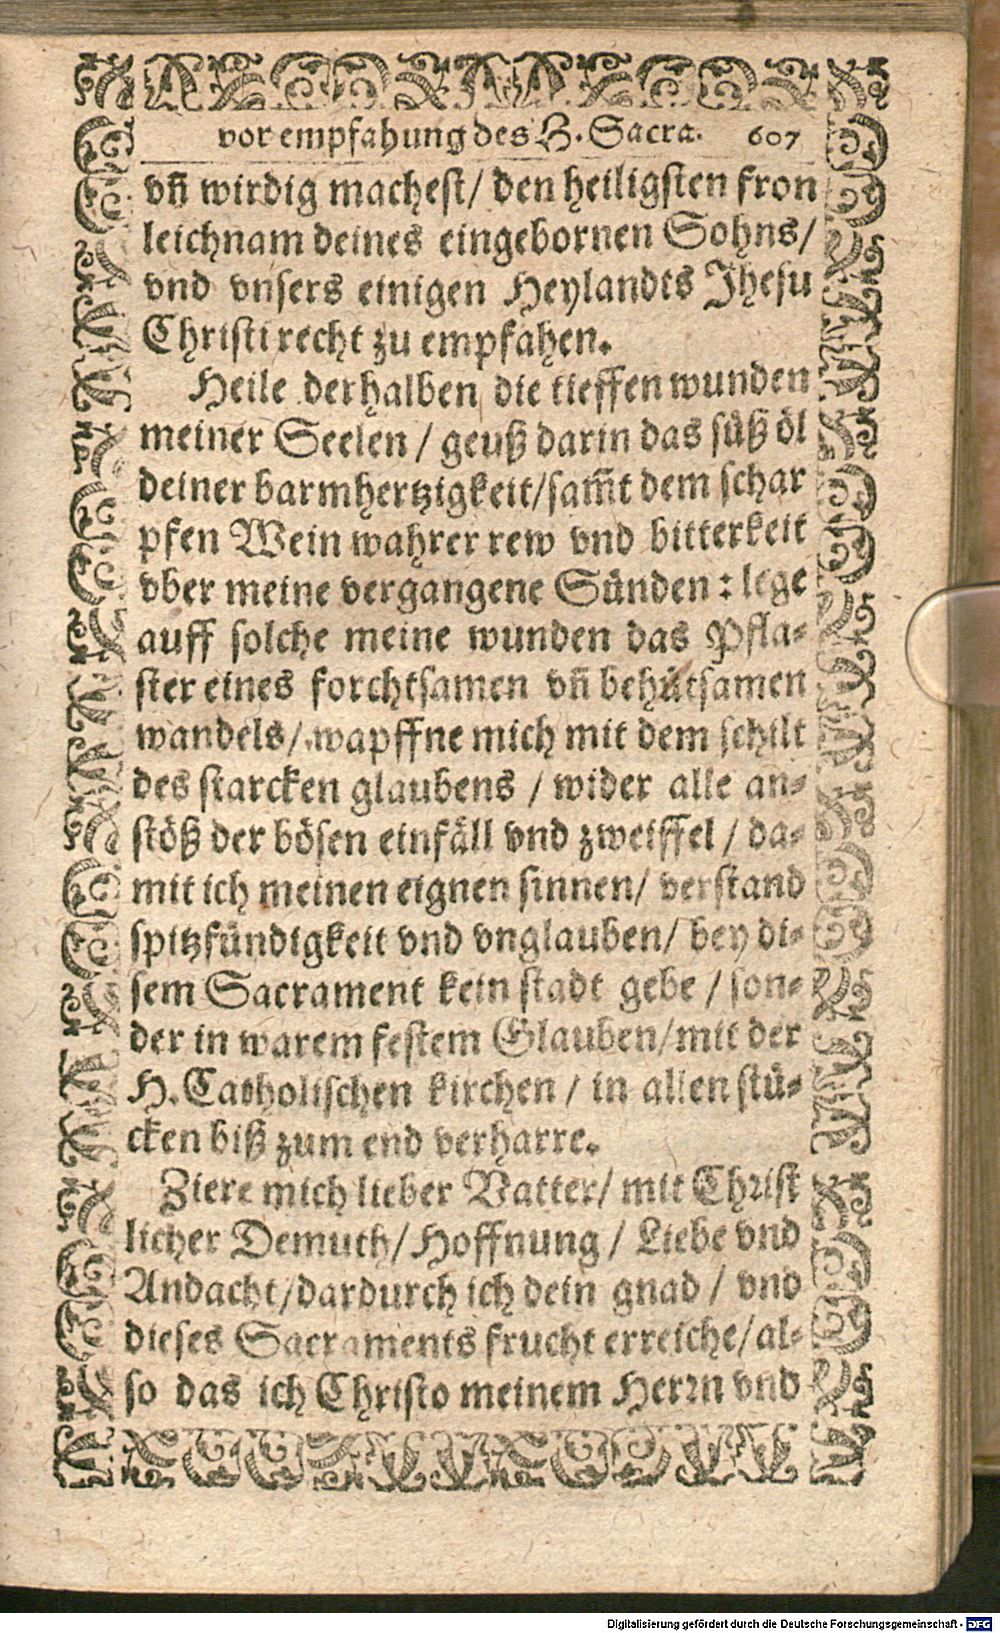 vor empfahung des H. Sacra. 607
vñ wirdig machest/ den heiligsten fron
leichnam deines eingebornen Sohns/
vnd vnsers einigen Heylandts Jhesu
Christi recht zu empfahen.
Heile derhalben die tieffen wunden
meiner Seelen / geuß darin das süß öl
deiner barmhertzigkeit/sam̃t dem schar
pfen Wein wahrer rew vnd bitterkeit
vber meine vergangene Sünden : lege
auff solche meine wunden das Pfla-
ster eines forchtsamen vñ behütsamen
wandels/ wapffne mich mit dem schilt
des starcken glaubens / wider alle an-
stöß der bösen einfäll vnd zweiffel / da-
mit ich meinen eignen sinnen/ verstand
spitzfündigkeit vnd vnglauben/ bey di-
sem Sacrament kein stadt gebe / son-
der in warem festem Glauben/mit der
H. Catholischen kirchen / in allen stü-
cken biß zum end verharre.
Ziere mich lieber Vatter/ mit Christ
licher Demuth/ Hoffnung / Liebe vnd
Andacht/dardurch ich dein gnad / vnd
dieses Sacraments frucht erreiche/al-
so das ich Christo meinem Herrn vnd
Digitalisierung gefördert durch die Deutsche Forschungsgemeinschaft - DFG